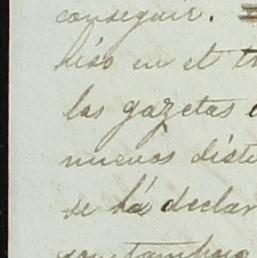 conseguir.
hiso en el
las gazetas
nuevos dist
se há declar